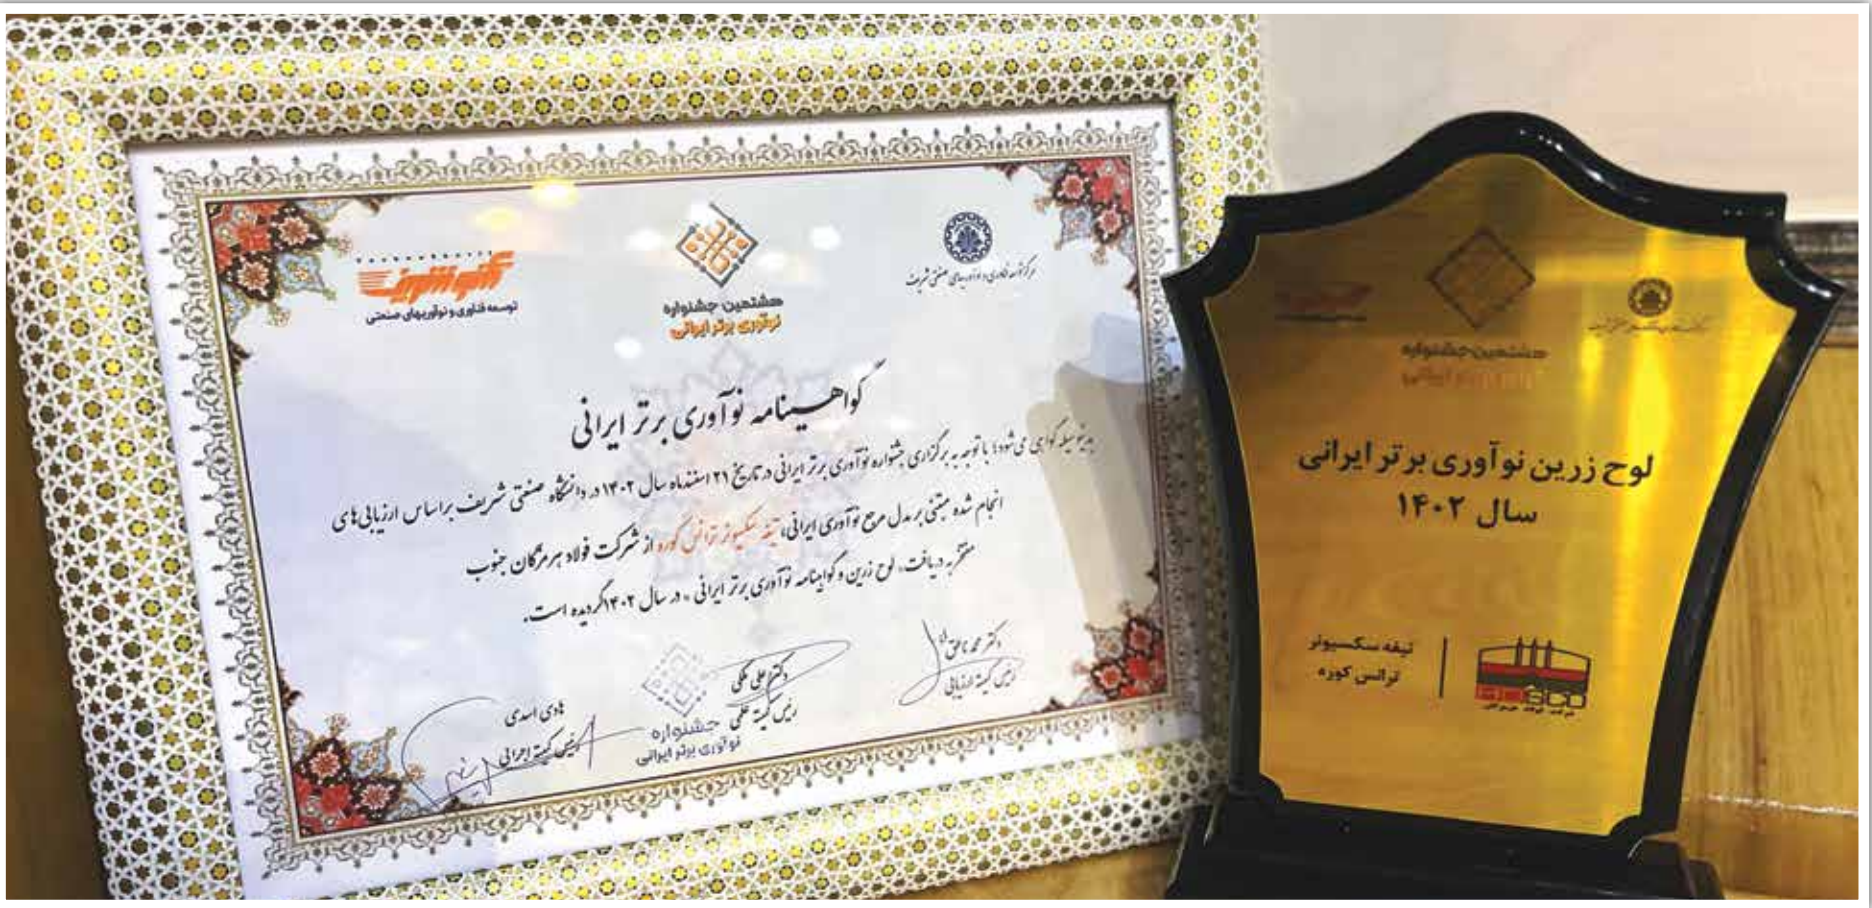 مرکز توسعه فناوری و نوآوریهای صنعتی شریف
هشتمین جشنواره
نوآوری برتر ایرانی
توسعه فناوری و نوآوریهای صنعتی
گواهینامه نوآوری برتر ایرانی
بدینوسیله گواهی می شود؛ با توجه به برگزاری جشنواره نوآوری برتر ایرانی در تاریخ ۲۱ اسفندماه سال ۱۴۰۲ در دانشگاه صنعتی شریف براساس ارزیابی های
انجام شده مبتنی بر مدل مرجع نوآوری ایرانی، تیغه سکسیونر ترانس کوره از شرکت فولاد هرمزگان جنوب
مفتخر به دریافت، لوح زرین و گواهینامه نوآوری برتر ایرانی، در سال ۱۴۰۲ گردیده است.
رئیس کمیته ارزیابی
دکتر علی ملکی
رئیس کمیته علمی
جشنواره
نوآوری برتر ایرانی
هادی اسدی
رئیس کمیته اجرائی
هشتمین جشنواره
نوآوری برتر ایرانی
لوح زرین نوآوری برتر ایرانی
سال ۱۴۰۲
تیغه سکسیونر
ترانس کوره